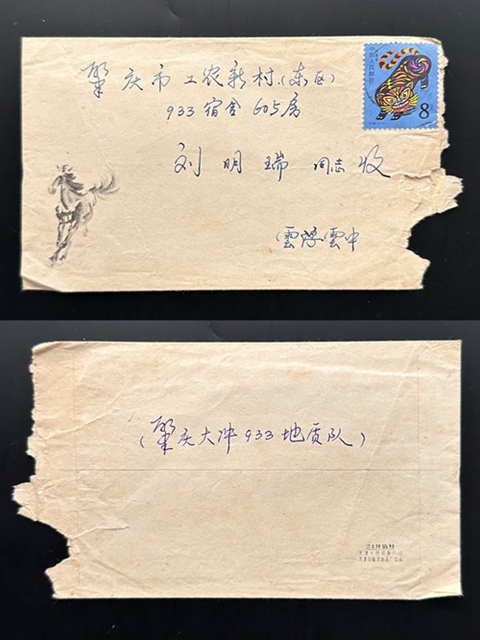 肇庆市工农新村(东区)
933宿舍605房
刘明瑞同志收
(雲浮雲中
8
(肇庆大冲933地质队)